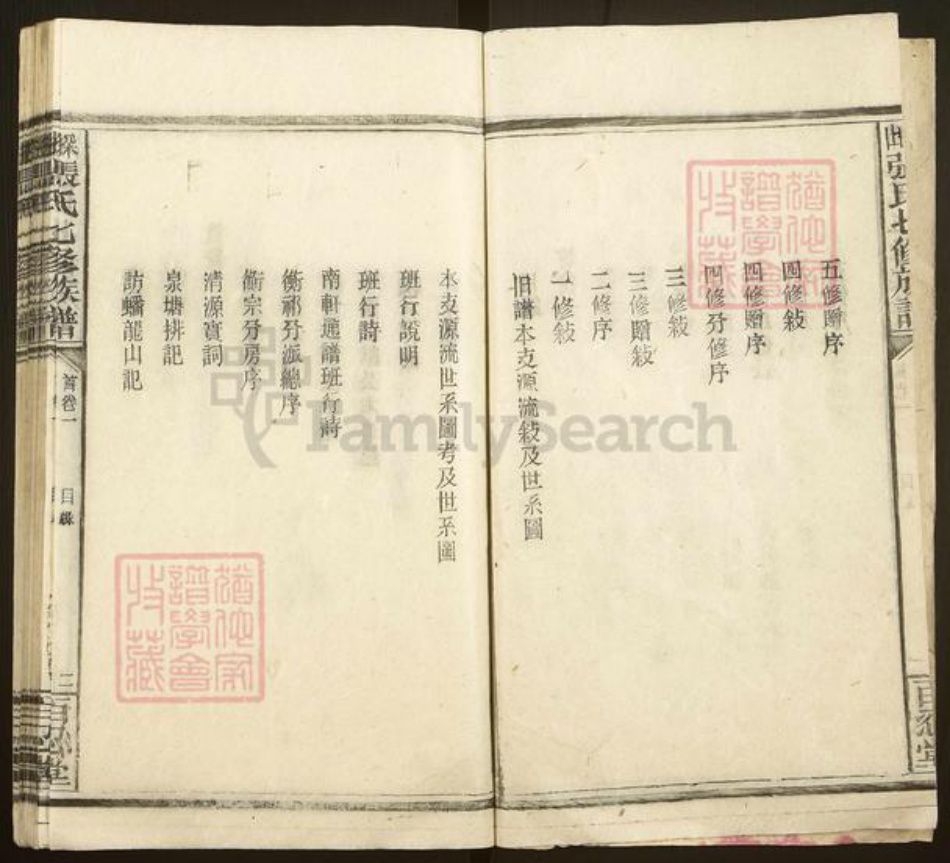 五修贈序
四修敍
四修贈序
四修分修序
三修敍
三修贈敍
二修序
一修敍
旧譜本支源流敍及世系圖
本支源流世系圖考及世系圖
班行說明
班行詩
南軒通譜班行詩
衡祁分派總序
衡宗分房序
清源實詞
泉塘排記
訪蟠龍山記
張氏七修族譜
首卷一
目錄
二
百忍堂
張氏七修族譜
百忍堂
猶他家譜學會收藏
猶他家譜學會收藏
FamilySearch